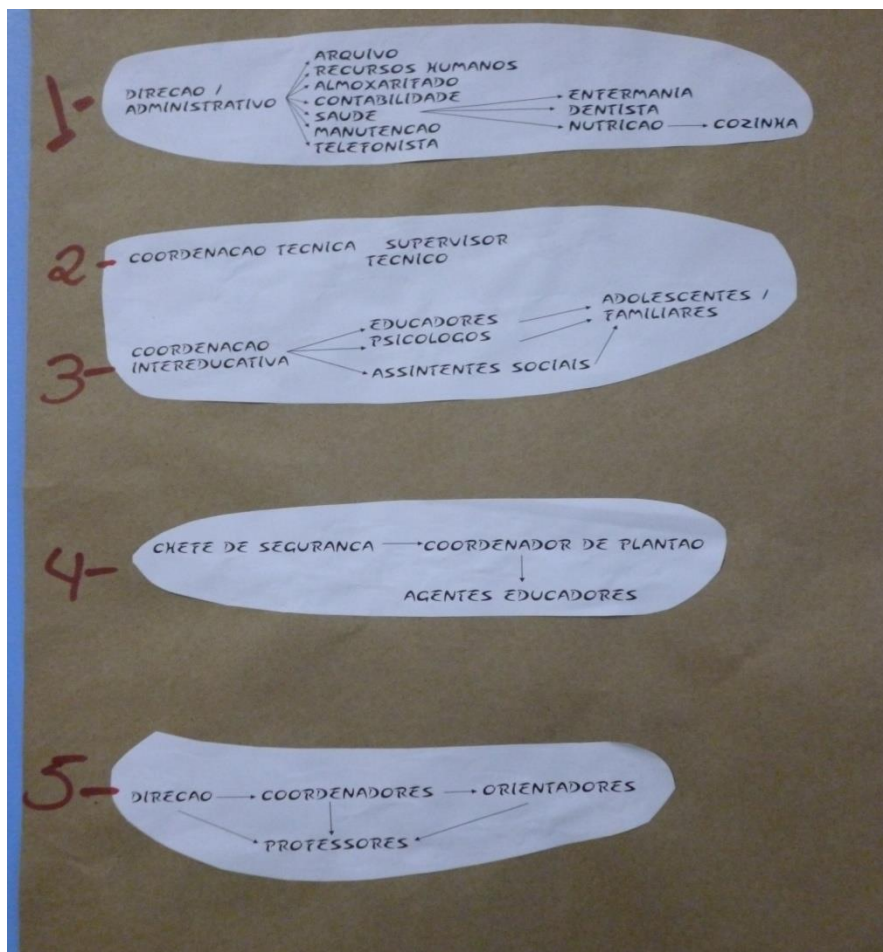 1-
DIRECAO /
ADMINISTRATIVO
ARQUIVO
RECURSOS HUMANOS
ALMOXARIFADO
CONTABILIDADE
SAUDE
MANUTENCAO
TELEFONISTA
ENFERMANIA
DENTISTA
NUTRICAO
COZINHA
2-
COORDENACAO TECNICA SUPERVISOR
TECNICO
3-
COORDENACAO
INTEREDUCATIVA
EDUCADORES
PSICOLOGOS
ASSINTENTES SOCIAIS
ADOLESCENTES /
FAMILIARES
4-
CHEFE DE SEGURANCA COORDENADOR DE PLANTAO
AGENTES EDUCADORES
5-
DIRECAO COORDENADORES ORIENTADORES
PROFESSORES